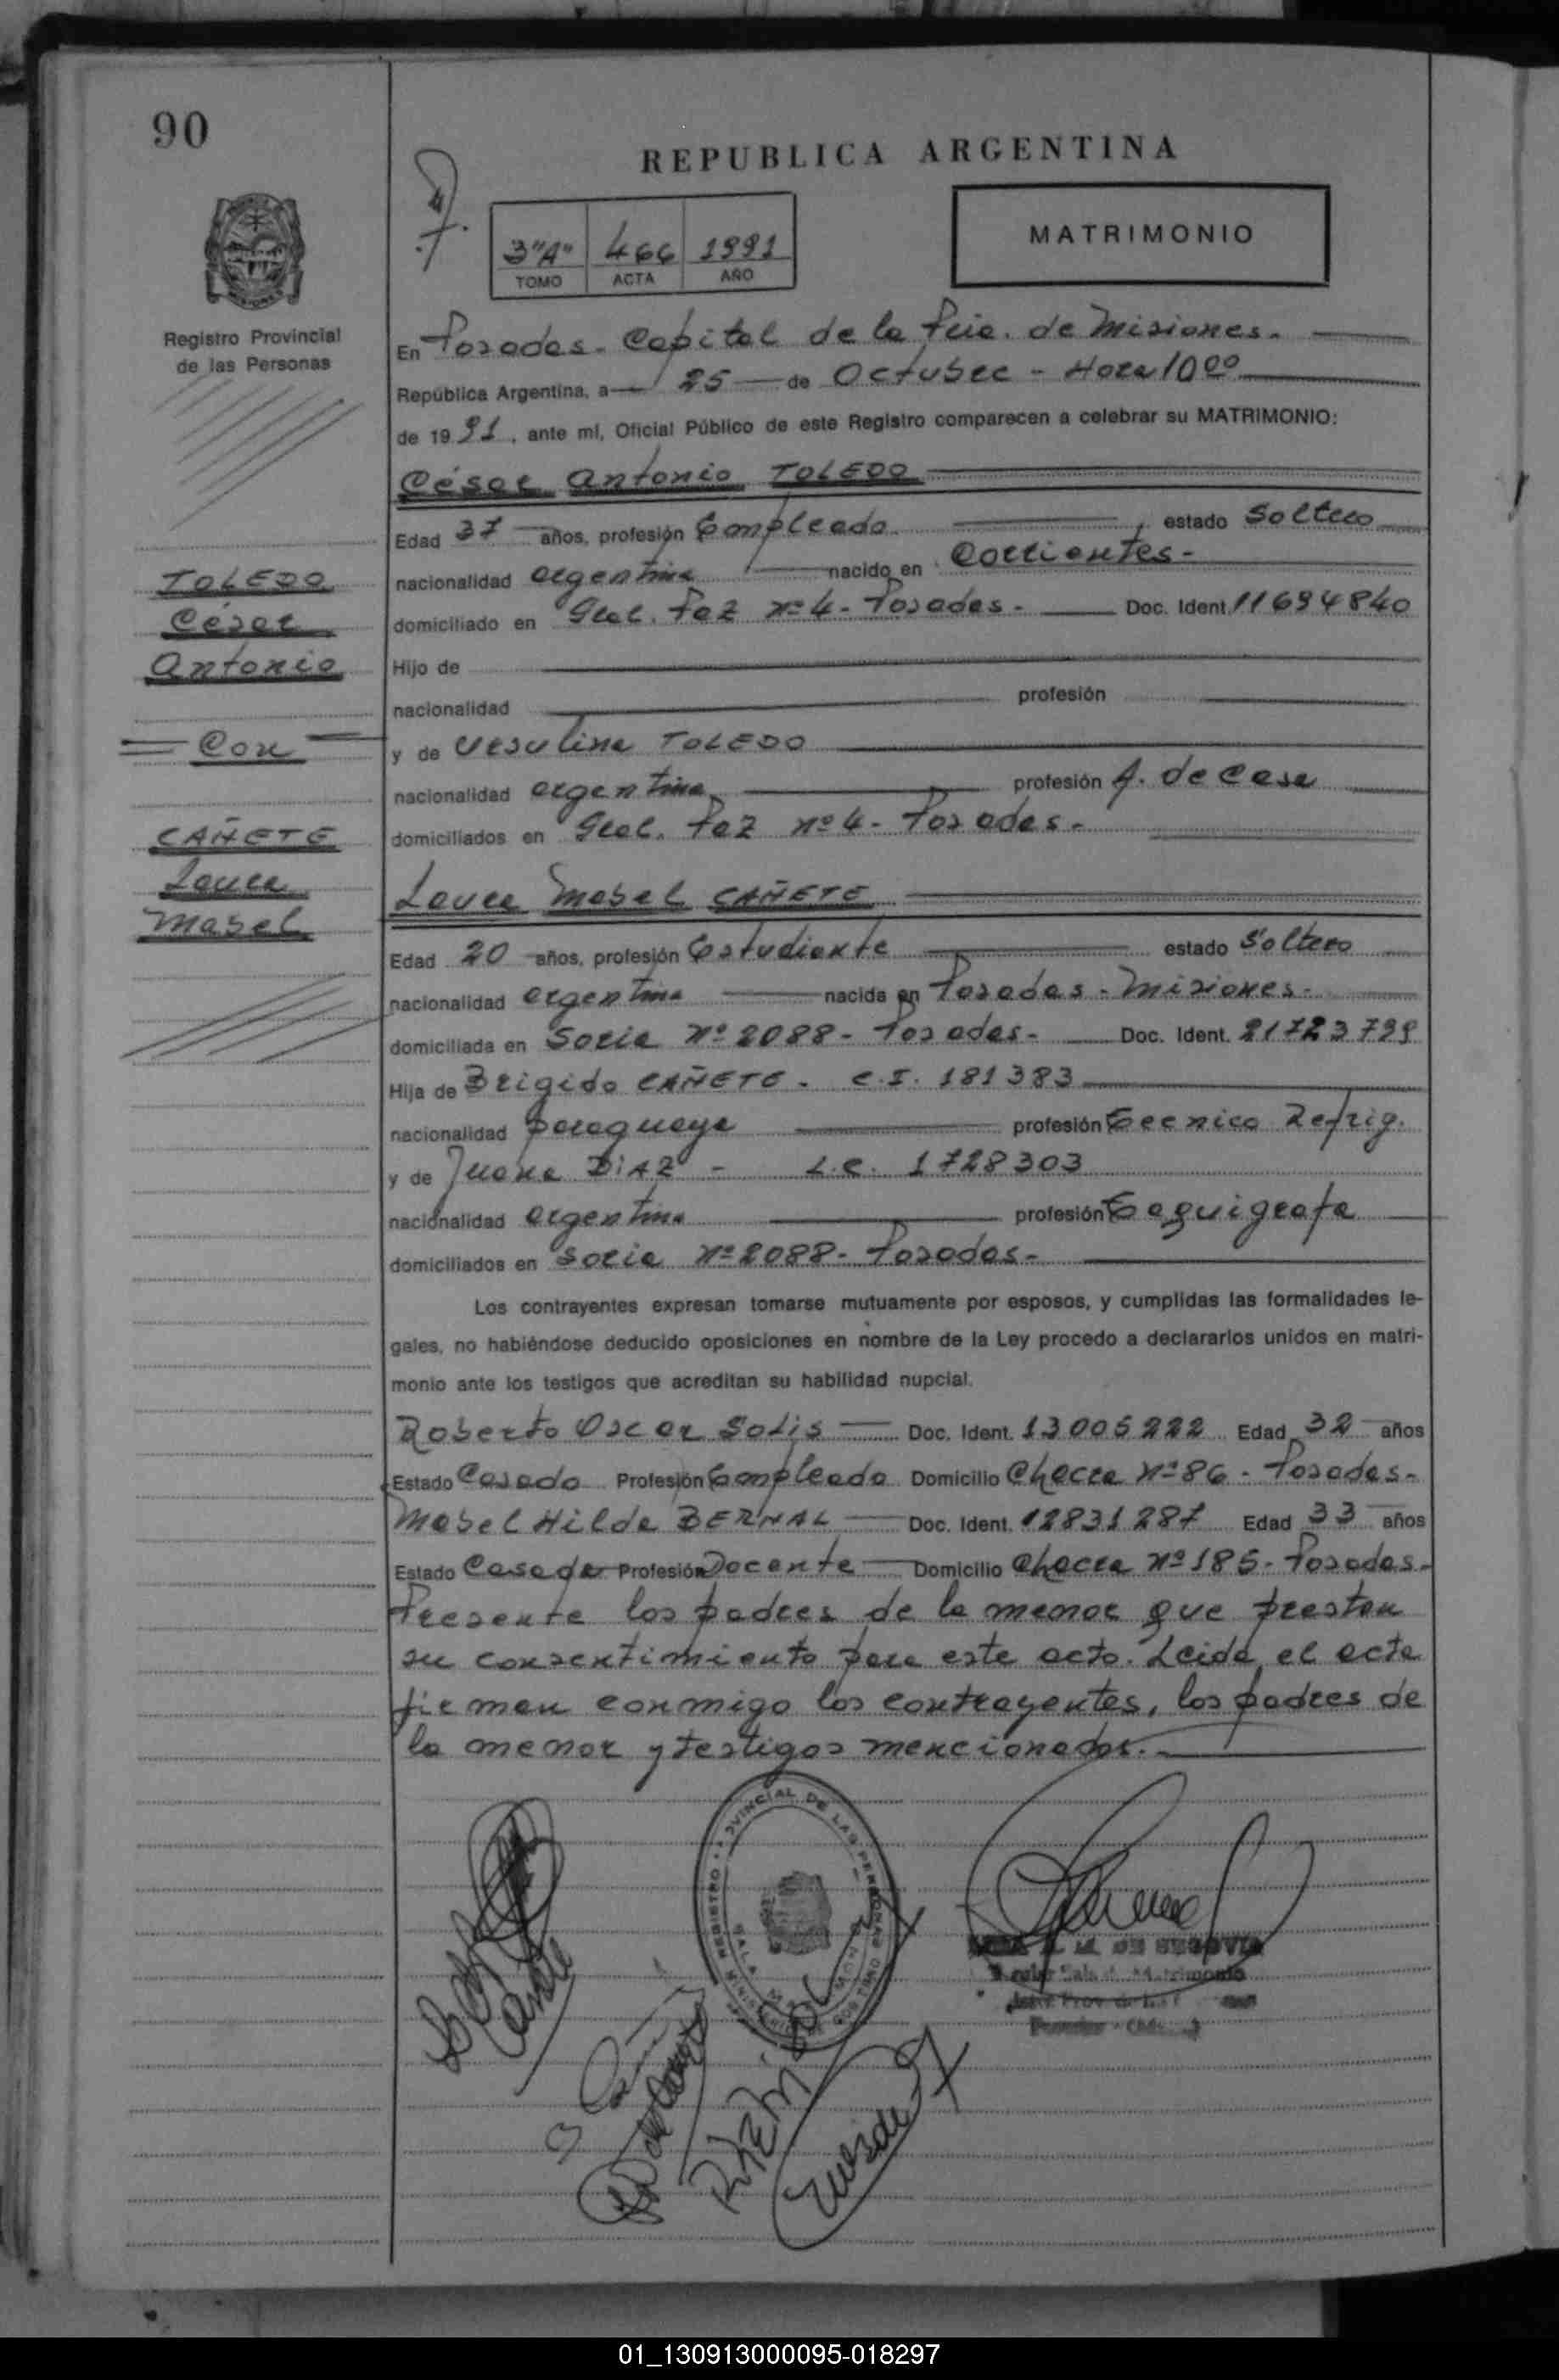 90
REPUBLICA ARGENTINA
MATRIMONIO
3"A" 466 1991
TOMO ACTA AÑO
Registro Provincial
de las Personas
En Posadas - Capital de la Pcia. de Misiones.
República Argentina, a 25 de Octubre - Hora 10 00
de 1991, ante mí, Oficial Público de este Registro comparecen a celebrar su MATRIMONIO:
César Antonio TOLEDO
Edad 37 años, profesión Empleado estado Soltero
nacionalidad argentina nacido en Corrientes -
domiciliado en Gral. Paz Nº 4 - Posadas - Doc. Ident 11694840
Hijo de
nacionalidad profesión
y de Ursulina TOLEDO
nacionalidad argentina profesión A. de Casa
domiciliados en Gral. Paz Nº 4 - Posadas -
TOLEDO
César
Antonio
Con
CAÑETE
Laura
Mabel
Laura Mabel CAÑETE
Edad 20 años, profesión Estudiante estado Soltero
nacionalidad argentina nacida en Posadas - Misiones -
domiciliada en Soria Nº 2088 - Posadas - Doc. Ident. 21723799
Hija de Brigido CAÑETE - C.I. 181383
nacionalidad paraguaya profesión Tecnico Refrig.
y de Juana DIAZ - L.C. 1728303
nacionalidad argentina profesión Taquigrafa
domiciliados en Soria Nº 2088 - Posadas -
Los contrayentes expresan tomarse mutuamente por esposos, y cumplidas las formalidades le-
gales, no habiéndose deducido oposiciones en nombre de la Ley procedo a declararlos unidos en matri-
monio ante los testigos que acreditan su habilidad nupcial.
Roberto Oscar Solis Doc. Ident. 13005222 Edad 32 años
Estado Casado Profesión Empleado Domicilio Chacra Nº 86 - Posadas -
Mabel Hilda BERNAL Doc. Ident. 12831287 Edad 33 años
Estado Casada Profesión Docente Domicilio Chacra Nº 185 - Posadas -
Presente los padres de la menor que prestan
su consentimiento para este acto. Leida el acta
firman conmigo los contrayentes, los padres de
la menor y testigos mencionados.-
REGISTRO PROVINCIAL DE LAS PERSONAS
SALA
M. DE SEGOVIA
01_130913000095-018297